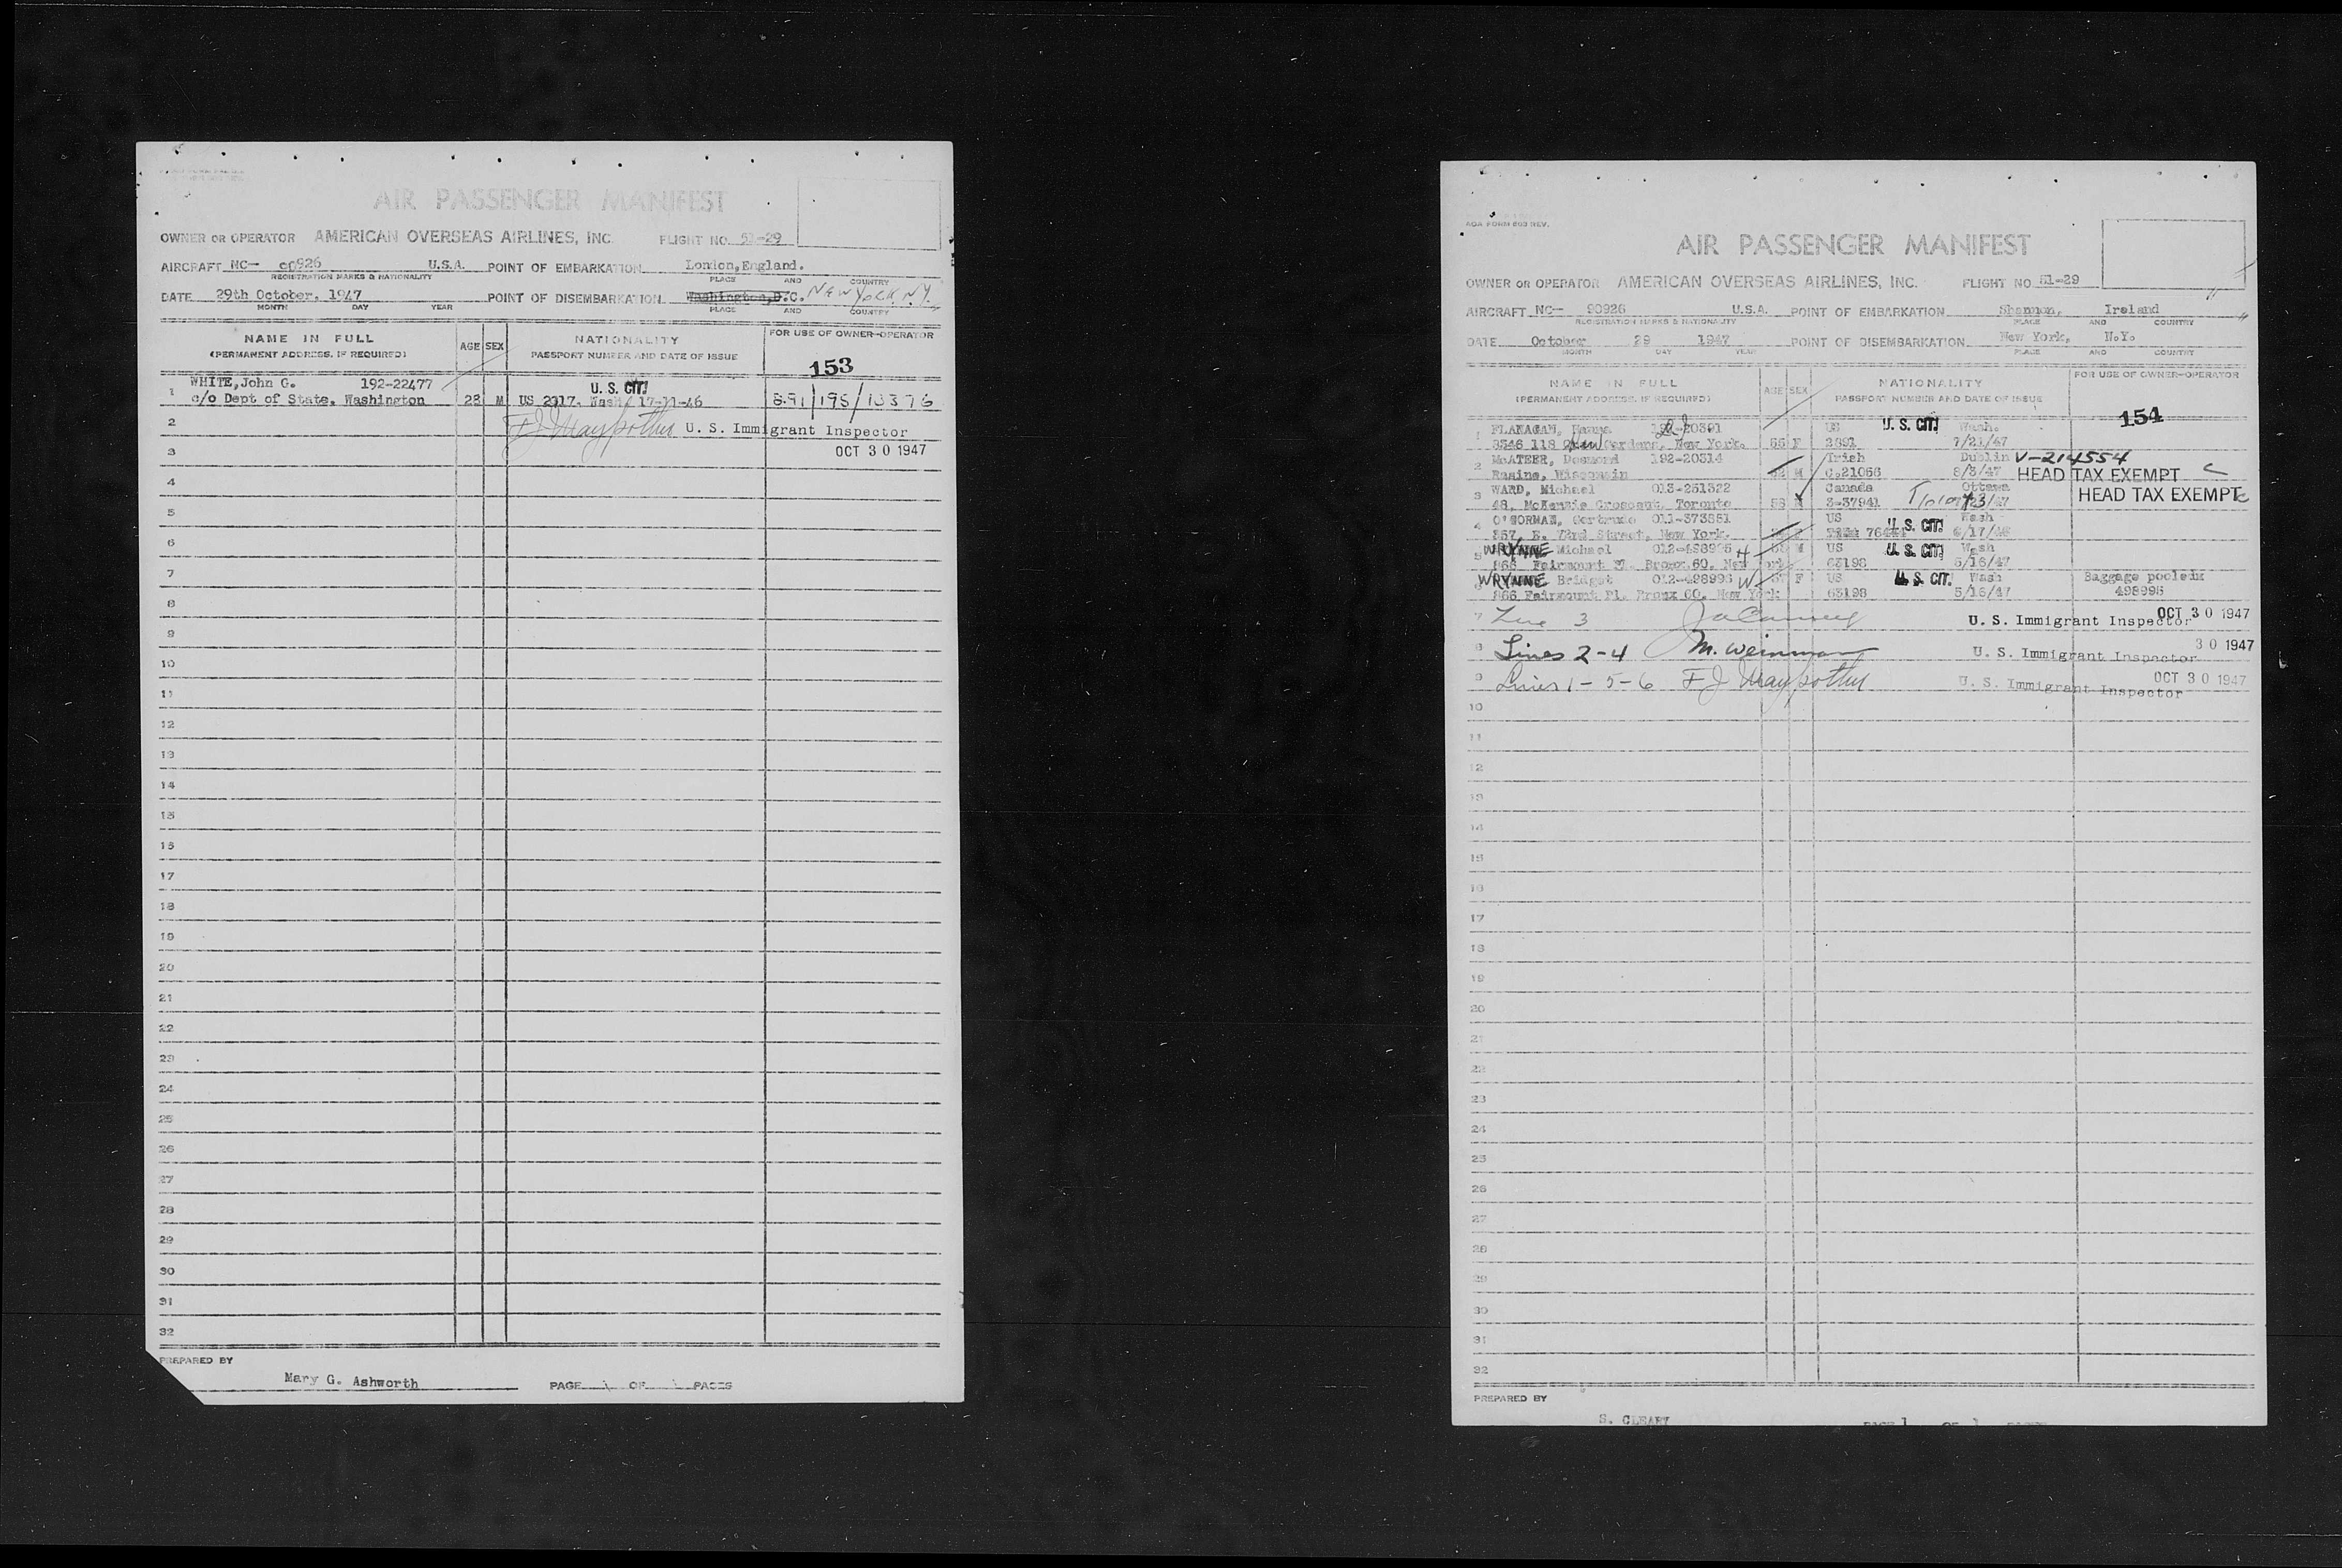 AIR PASSENGER MANIFEST
OWNER OR OPERATOR AMERICAN OVERSEAS AIRLINES, INC. FLIGHT NO. -29
AIRCRAFT NC— 90926 U.S.A. POINT OF EMBARKATION London, England.
REGISTRATION MARKS & NATIONALITY PLACE AND COUNTRY
DATE 29th October, 1947 POINT OF DISEMBARKATION Washington, D.C. NEW YORK, N.Y.
MONTH DAY YEAR PLACE AND COUNTRY
NAME IN FULL AGE SEX NATIONALITY FOR USE OF OWNER-OPERATOR
(PERMANENT ADDRESS, IF REQUIRED) PASSPORT NUMBER AND DATE OF ISSUE
153
WHITE, John G. 192-22477 U. S. CIT.
1 c/o Dept of State, Washington 28 M US 2017. Wash 17-11-46 891/195/13376
2 F J Maypother U. S. Immigrant Inspector
3 OCT 30 1947
4
5
6
7
8
9
10
11
12
13
14
15
16
17
18
19
20
21
22
23
24
25
26
27
28
29
30
31
32
PREPARED BY
Mary G. Ashworth PAGE 1 OF 1 PAGES
AOA FORM 803 REV.
AIR PASSENGER MANIFEST
OWNER OR OPERATOR AMERICAN OVERSEAS AIRLINES, INC. FLIGHT NO. 51-29
AIRCRAFT NC— 90926 U.S.A. POINT OF EMBARKATION Shannon, Ireland
REGISTRATION MARKS & NATIONALITY PLACE AND COUNTRY
DATE October 29 1947 POINT OF DISEMBARKATION New York, N.Y.
MONTH DAY YEAR PLACE AND COUNTRY
NAME IN FULL AGE SEX NATIONALITY FOR USE OF OWNER-OPERATOR
(PERMANENT ADDRESS, IF REQUIRED) PASSPORT NUMBER AND DATE OF ISSUE
154
1 FLANAGAN, 192-20391 US U. S. CIT. Wash.
3546 118 Gardens, New York. 56 F 2891 7/21/47
2 McATEER, Desmond 192-20314 Irish Dublin V-214554
Rasine, Wisconsin M C.21056 8/3/47 HEAD TAX EXEMPT C
3 WARD, Michael 013-251322 Canada Ottawa HEAD TAX EXEMPT C
48, McKenzie Crescent, Toronto 58 M 3-37941
4 O'GORMAN, Gertrude 011-373851 US U. S. CIT. Wash
357, E. 72nd Street, New York.
5 WRYNNE Michael 012-498995 H M US U. S. CIT. Wash
866 Fairmount Pl. Bronx 60, New York 63198 5/16/47
6 WRYNNE Bridget 012-498996 W F US U. S. CIT. Wash Baggage pooled
866 Fairmount Pl. Bronx 60, New York 63198 5/16/47 498995
7 Line 3 U. S. Immigrant Inspector OCT 30 1947
8 Lines 2-4 M. Weinman U. S. Immigrant Inspector 30 1947
9 Lines 1-5-6 F J Maypother U. S. Immigrant Inspector OCT 30 1947
10
11
12
13
14
15
16
17
18
19
20
21
22
23
24
25
26
27
28
29
30
31
32
PREPARED BY
S. CLEARY